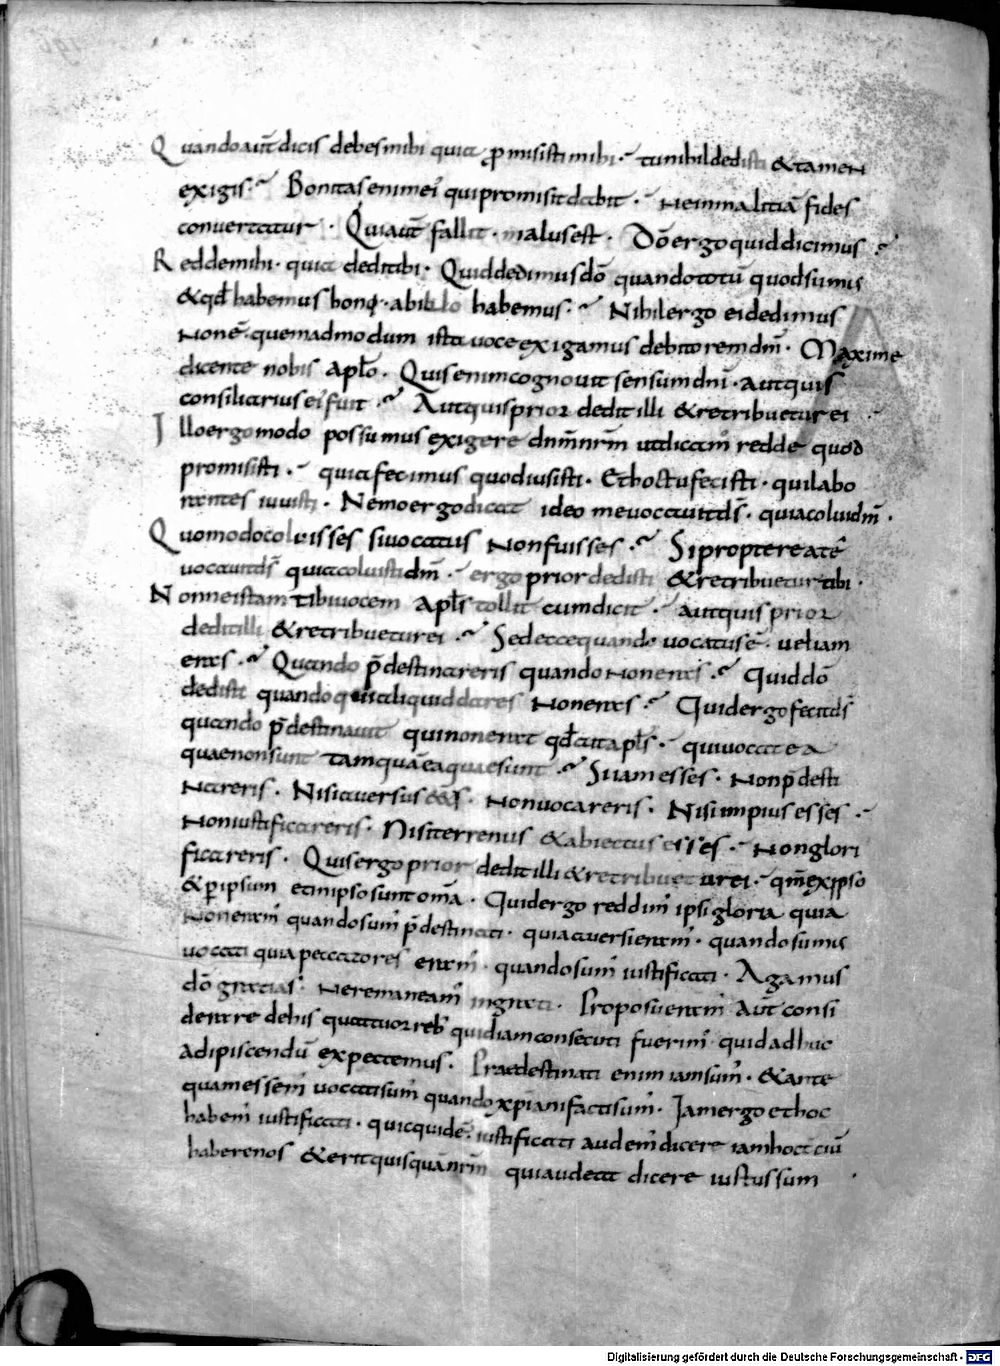 Quando aut̄ dicis debes mihi quia p̱misisti mihi · tu nihil dedisti & tamen
exigis · Bonitas enim ei' qui promisit dabit · ne in malitiā fides
convertatur · Quia aut̄ fallit · malus est · Dō ergo quid dicimus ·
Redde mihi · quia dedi tibi · Quid dedimus dō quando totū quod sumus
& qd̄ habemus boni · ab illo habemus · Nihil ergo ei dedimus
non ē · quemadmodum ista voce exigamus debitorem dn̄m · Maxime
dicente nobis aplo · Quis enim cognovit sensum dn̄i · aut quis
consiliarius ei' fuit · Aut quis prior dedit illi & retribuetur ei
Illo ergo modo possumus exigere dn̄m nr̄m ut dicam' redde quod
promisisti · quia fecimus quod iusisti · Et hoc tu fecisti · qui labo
rantes iuvisti · Nemo ergo dicat ideo me vocavit ds̄ · quia colui dm̄ ·
Quomodo coluisses si vocatus non fuisses · Si propterea te
vocavit ds̄ quia coluisti dm̄ · ergo prior dedisti & retribuetur tibi ·
Nonne istam tibi vocem apl̄s tollit cum dicit · aut quis prior
dedit illi & retribuetur ei · Sed ecce quando vocatus ē · vel iam
eras · Quando p̄destinareris quando non eras · Quid dō
dedisti quando qui aliquid dares non eras · Quid ergo fecit ds̄
quando p̄destinavit qui non erat qd̄ ait apl̄s · qui vocat ea
quae non sunt tamquā ea quae sunt · Si iam esses · non p̄desti
nareris · Nisi aversus eēs · non vocareris · Nisi impius esses ·
non iustificareris · Nisi terrenus & abiectus esses · non glori
ficareris · Quis ergo prior dedit illi & retribuetur ei · qm̄ ex ipso
& p̱ ipsum et in ipso sunt om̄a · Quid ergo reddim' ipsi gloria quia
non eram' quando sum' p̄destinati · quia aversi eram' · quando sumus
vocati quia peccatores eram' · quando sum' iustificati · Agamus
dō gratias · ne remaneam' ingrati · Proposueram' aut̄ consi
derare de his quattuor reb' quid iam consecuti fuerim' quid adhuc
adipiscendū expectemus · Praedestinati enim iam sum' · & ante
quam essem' vocati sum' quando xpiani facti sum' · Iam ergo et hoc
habem' iustificati · quicquid ē · iustificati audem' dicere iam hoc
habere nos & erit quisquā nr̄m qui audeat dicere iustus sum
Digitalisierung gefördert durch die Deutsche Forschungsgemeinschaft - DFG